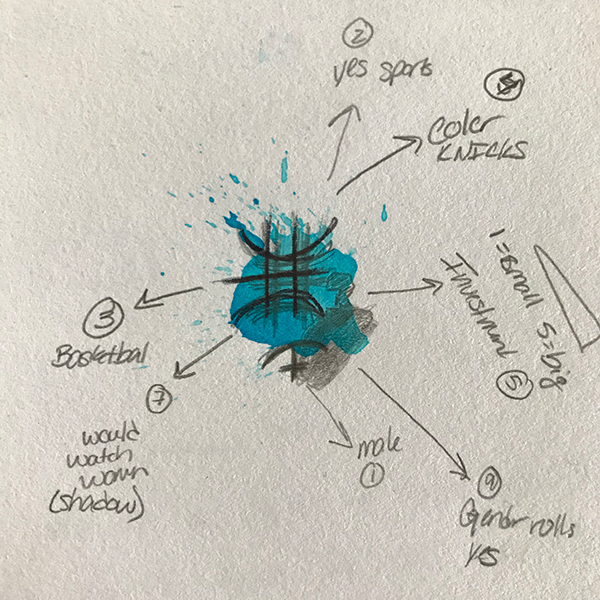 ②
yes sports
color
KNICKS
1 = small 5 = big
⑤
③
Basketbal
⑦
would
watch
women
(shadow)
male
①
⑨
Gender rolls
yes